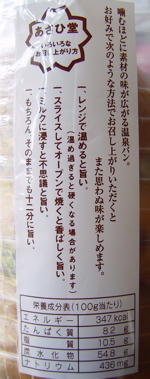 あさひ堂
いろいろな
お召し上がり方
噛むほどに素材の味が広がる温泉パン。
お好みで次のような方法でお召し上がりいただくと
また思わぬ味が楽しめます。
一、レンジで温めると旨い。
(温め過ぎると、硬くなる場合があります)
一、スライスしてオーブンで焼くと香ばしく旨い。
一、ミルクに浸すと不思議と旨い。
一、もちろん、そのままでも十二分に旨い。
栄養成分表(100g当たり)
エネルギー 347 kcal
たんぱく質 8.2 g
脂質 10.5 g
炭水化物 54.8 g
ナトリウム 436 mg